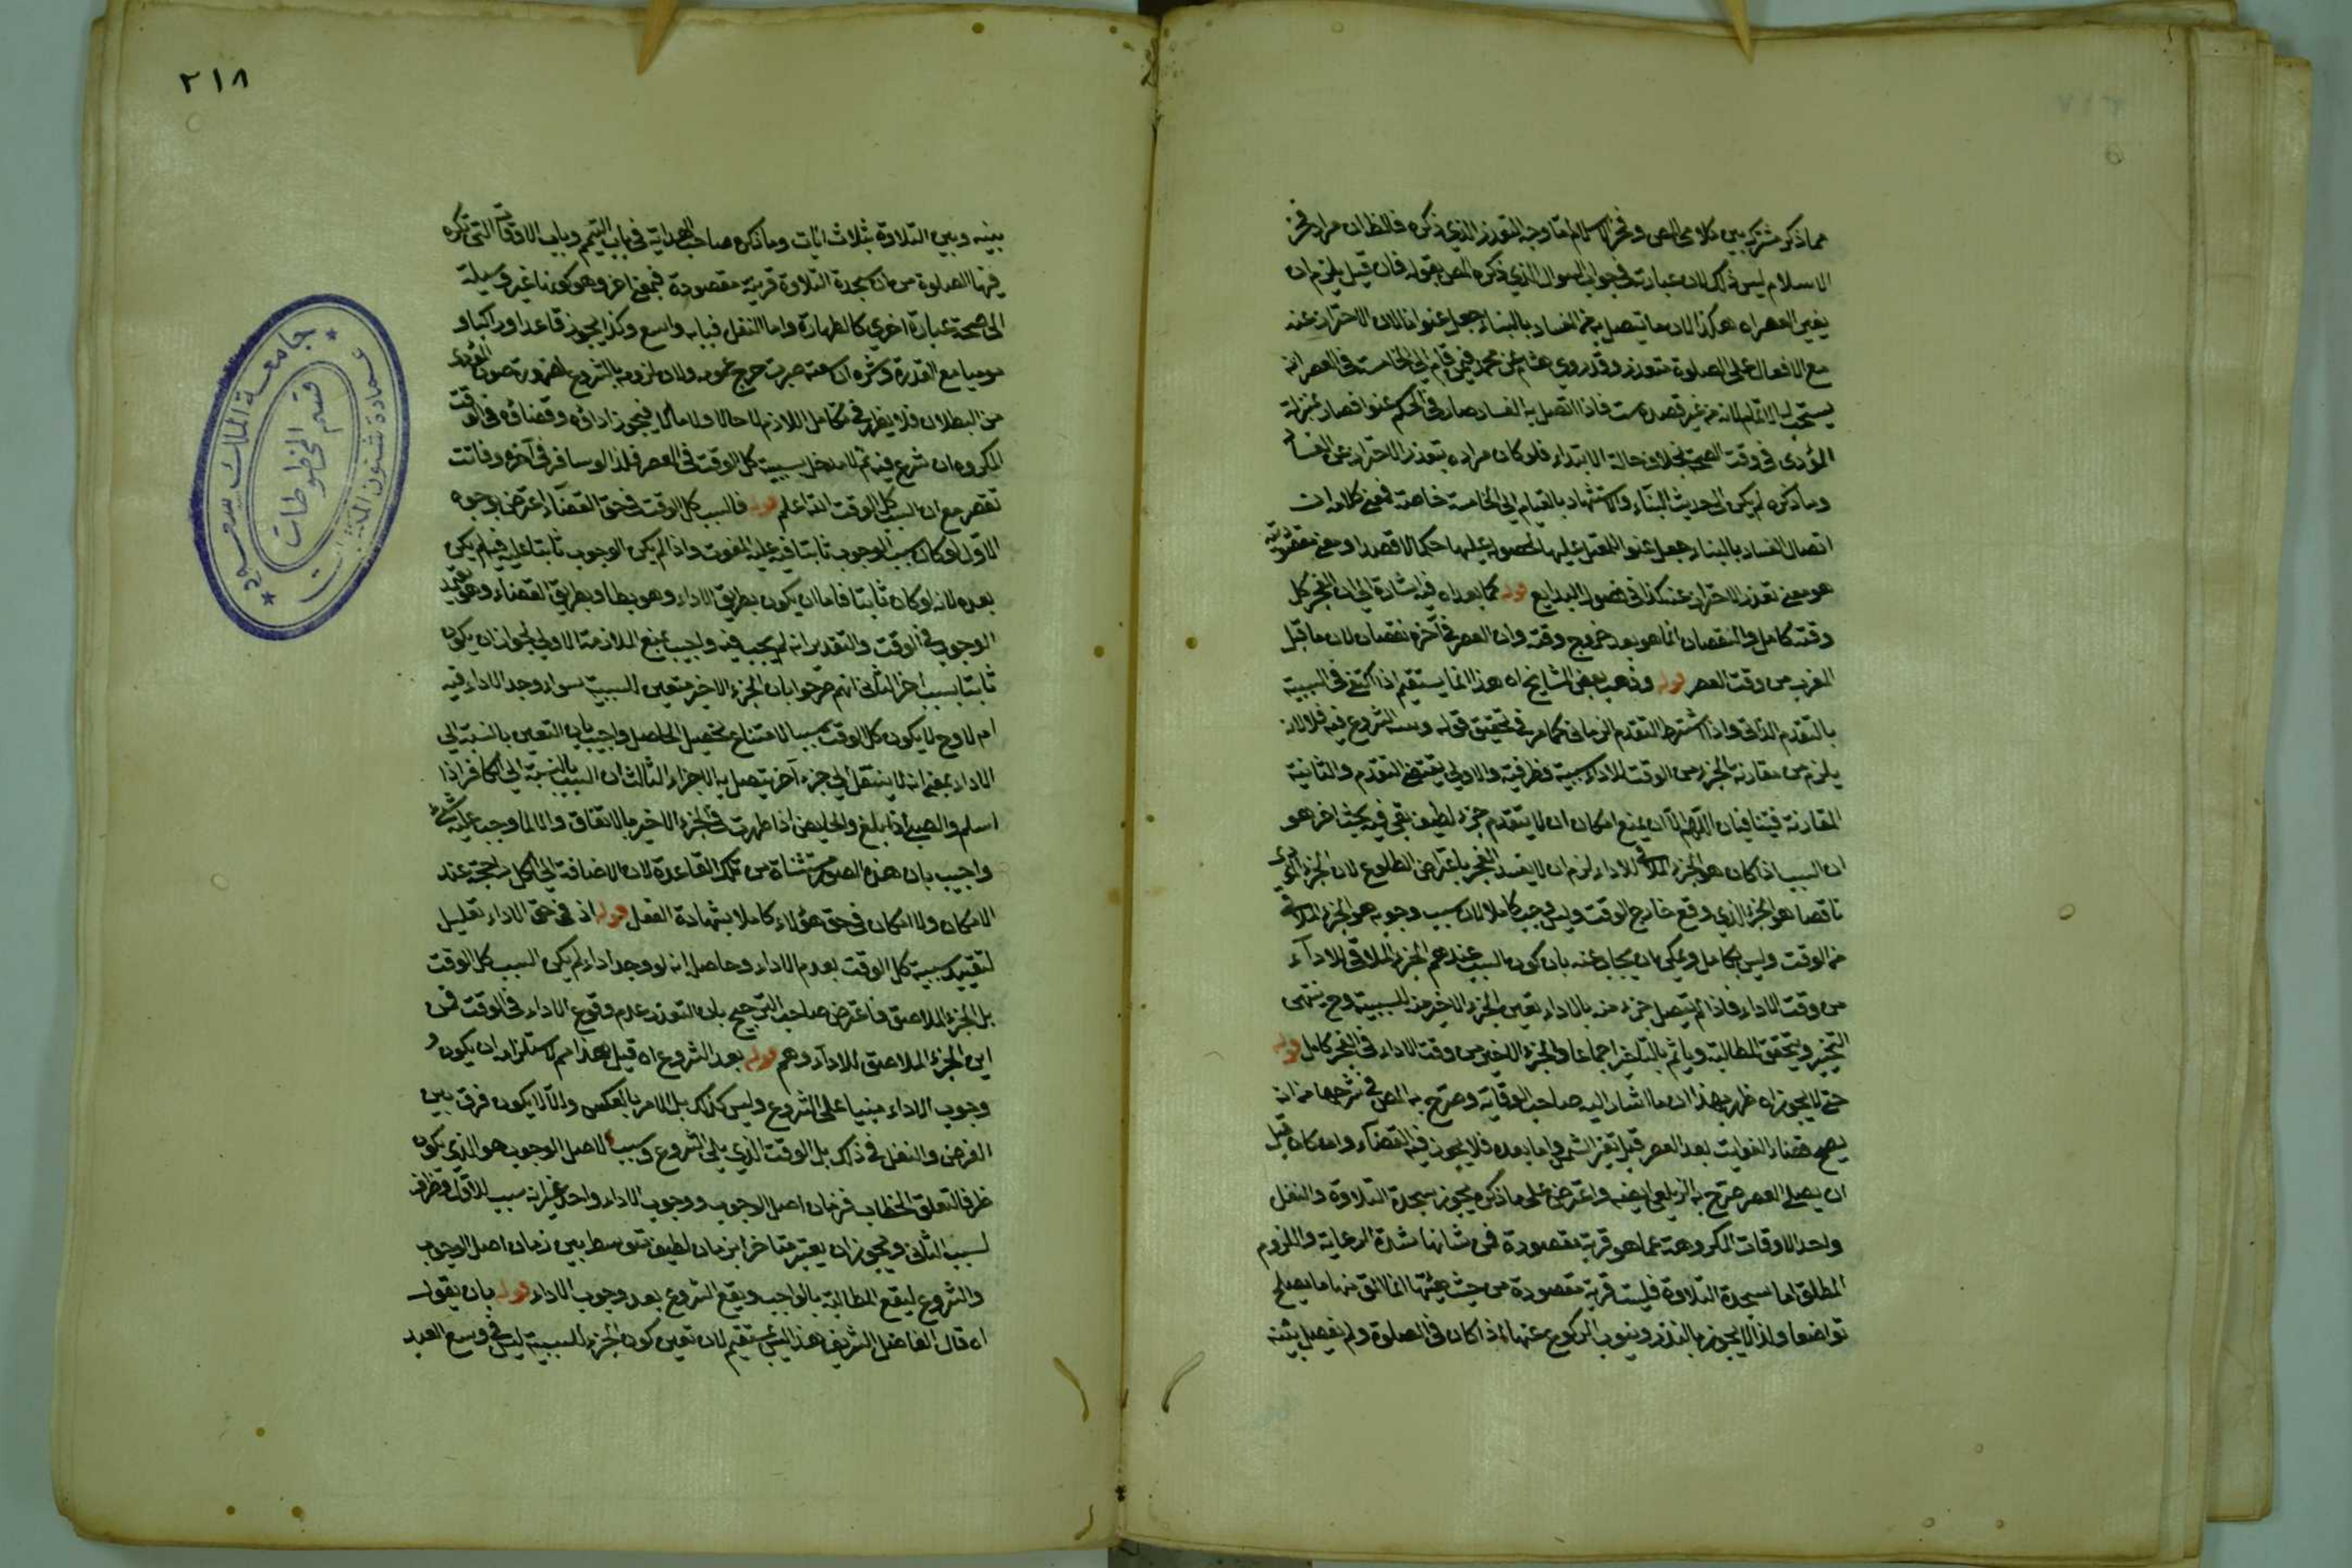 مما ذكر مشترك بين كلامي المص وفخر الاسلام اما وجه التعذر الذي ذكره فالظ ان مراد فخر
الاسلام ليس ذلك لان عبارته في جواب السوال الذي ذكره المص بقوله فان قيل يلزم ان
يفسد العصر اه هكذا لان ما يتصل به من الفساد بالبناء جعل عفوا لان الاحتراز عنه
مع الاقبال على الصلوة متعذر وقد روي هشام عن محمد فيمن قام الى الخامسة في العصر انه
يستحب له الاتمام لانه من غير قصده فاذا اتصل به الفساد صار في الحكم عفوا فصار بمنزلة
المؤدى في وقت الصحة بخلاف حالة الابتداء فلو كان مراده بتعذر الاحتراز عن الفساد
وما ذكره لم يكن الى حديث البناء والاستشهاد بالقيام الى الخامسة خاصة فمعنى كلامه ان
اتصال الفساد بالبناء جعل عفوا
هو معنى تعذر الاحتراز عنه كذا في فصول البدايع قوله كما بعداه فيه اشارة الى ان الفجر كل
وقته كامل والنقصان انما هو بعد خروج وقته وان العصر في آخره نقصان لان ما قبل
المغرب من وقت العصر قوله وذهب بعض المشايخ اه هذا انما يستقيم اذا اكتفى في السببية
بالتقدم الذاتي واذا اشترط التقدم الزماني كما مر في تحقيق قوله وسعه الشروع فيه فلا لانه
يلزم من مقارنة الجزء من الوقت للاداء سببية وظرفية والاولى يقتضي التقدم والثانية
المقارنة فيتنافيان اللهم الا ان يمنع امكان ان لا يتقدم جزء لطيف بقي فيه بحث اخر هو
ان السبب اذا كان هو الجزء الملاقي للاداء لزم ان لا يفسد الفجر باعتراض الطلوع لان الجزء المؤدى
ناقصا هو الجزء الذي وقع خارج الوقت وليس وجب كاملا لان سبب وجوبه هو الجزء الملاقي
من الوقت وليس بكامل ويمكن ان يجاب عنه بان كون السبب عندهم الجزء الملاقي للاداء
من وقت الاداء فاذا لم يتصل جزء منه بالاداء يتعين الجزء الاخير منه للسببية وح ينتهى
التخيير ويتحقق المطالبة وياثم بالتاخير اجماعا والجزء الاخير من وقت الاداء في الفجر كامل قوله
حتى لا يجوز اه ظهر بهذا ان ما اشار اليه صاحب الوقاية وصرح به المص في شرحها من انه
يصح قضاء الفوايت بعد العصر قبل تغير الشمس واما بعده فلا يجوز فيه القضاء وان كان قبل
ان يصلي العصر صرح به الزيلعي ايضا واعترض على ما ذكره بجوز سجدة التلاوة والنفل
واحد الاوقات المكروهة مما هو قربة مقصودة فمن شانها شدة الرعاية والملزوم
المطلق اما سجدة التلاوة فليست قربة مقصودة من حيث هيئتها انما المق منها ما يصلح
تواضعا ولذا لا يجوز بالنذر وينوب الركوع عنها اذا كان في الصلوة ولم يفصل بينه
٢١٨
بينه وبين التلاوة بثلاث ايات وما ذكره صاحب الهداية في باب التيمم وباب الاوقات التي تكره
فيها الصلوة من ان سجدة التلاوة قربة مقصودة فبمعنى اخر وهو كونها غير وسيلة
الى صحة عبادة اخرى كالطهارة واما النفل فبابه واسع وكذا يجوز قاعدا وراكبا و
موميا مع القدرة ولان لزومه بالشروع لضرورة صون المؤدى
من البطلان فلا يظهر في تكامل اللازم لا حالا ولا مآلا فيجوز اداؤه وقضاؤه في الوقت
المكروه ان شرع فيه ثم لا مدخل لسببية كل الوقت في العصر فلذا لو سافر في آخره وفاتت
تقصر مع ان السبب كل الوقت الله اعلم قوله فالسبب كل الوقت في حق القضاء اعترض بوجوه
الاول لو كان سبب الوجوب ثابتا فيه عليه المفوت واذا لم يكن الوجوب ثابتا عليه فيه لم يكن
بعده لانه لو كان ثابتا فاما ان يكون بطريق الاداء وهو بط او بطريق القضاء وهو يعتمد
الوجوب في الوقت والتقدير انه لم يجب فيه واجيب بمنع الملازمة الاولى لجواز ان يكون
ثابتا بسبب اخر الثاني انهم صرحوا بان الجزء الاخير متعين للسببية سواء وجد الاداء فيه
ام لا وح لا يكون كل الوقت سببا لامتناع تحصيل الحاصل واجيب بان التعين بالنسبة الى
الاداء بمعنى انه لا ينتقل الى جزء آخر يتصل به الاجزاء الثالث ان السبب بالنسبة الى الكافر اذا
اسلم والصبي اذا بلغ والحايض اذا طهرت في الجزء الاخير بالاتفاق والا لما وجب عليه شئ
واجيب بان هذه الصور مستثناة من تلك القاعدة لان الاضافة الى الكل راجحة عند
الامكان ولا امكان في حق هؤلاء كاملا بشهادة العقل قوله اذ في حق الاداء تعليل
لتقييد سببية كل الوقت بعدم الاداء وحاصله انه لو وجد اداء لم يكن السبب كل الوقت
بل الجزء الملاصق فاعترض صاحب الترجيح بان التعذر عدم وقوع الاداء في الوقت فمن
اين الجزء الملاصق للاداء وهم قوله بعد الشروع اه قيل هذا مم لاستلزامه ان يكون و
وجوب الاداء مبنيا على الشروع وليس كذلك بل الامر بالعكس والا لا يكون فرق بين
الفرض والنفل في ذلك بل الوقت الذي يلي الشروع وسبب لاصل الوجوب هو الذي يكون
ظرفا لتعلق الخطاب فزمان اصل الوجوب ووجوب الاداء واحد غير انه سبب للاول وظرف
لسبب الثاني ويجوز ان يعتبر متاخرا بزمان لطيف يتوسط بين زمان اصل الوجوب
والشروع ليقع المطالبة بالواجب ويقع الشروع بعد وجوب الاداء قوله بان يقول
اه قال الفاضل الشريف هذا ليس بمستقيم لان تعين كون الجزء للسببية ليس في وسع العبد
جامعة الملك سعود
عمادة شئون المكتبات
قسم المخطوطات